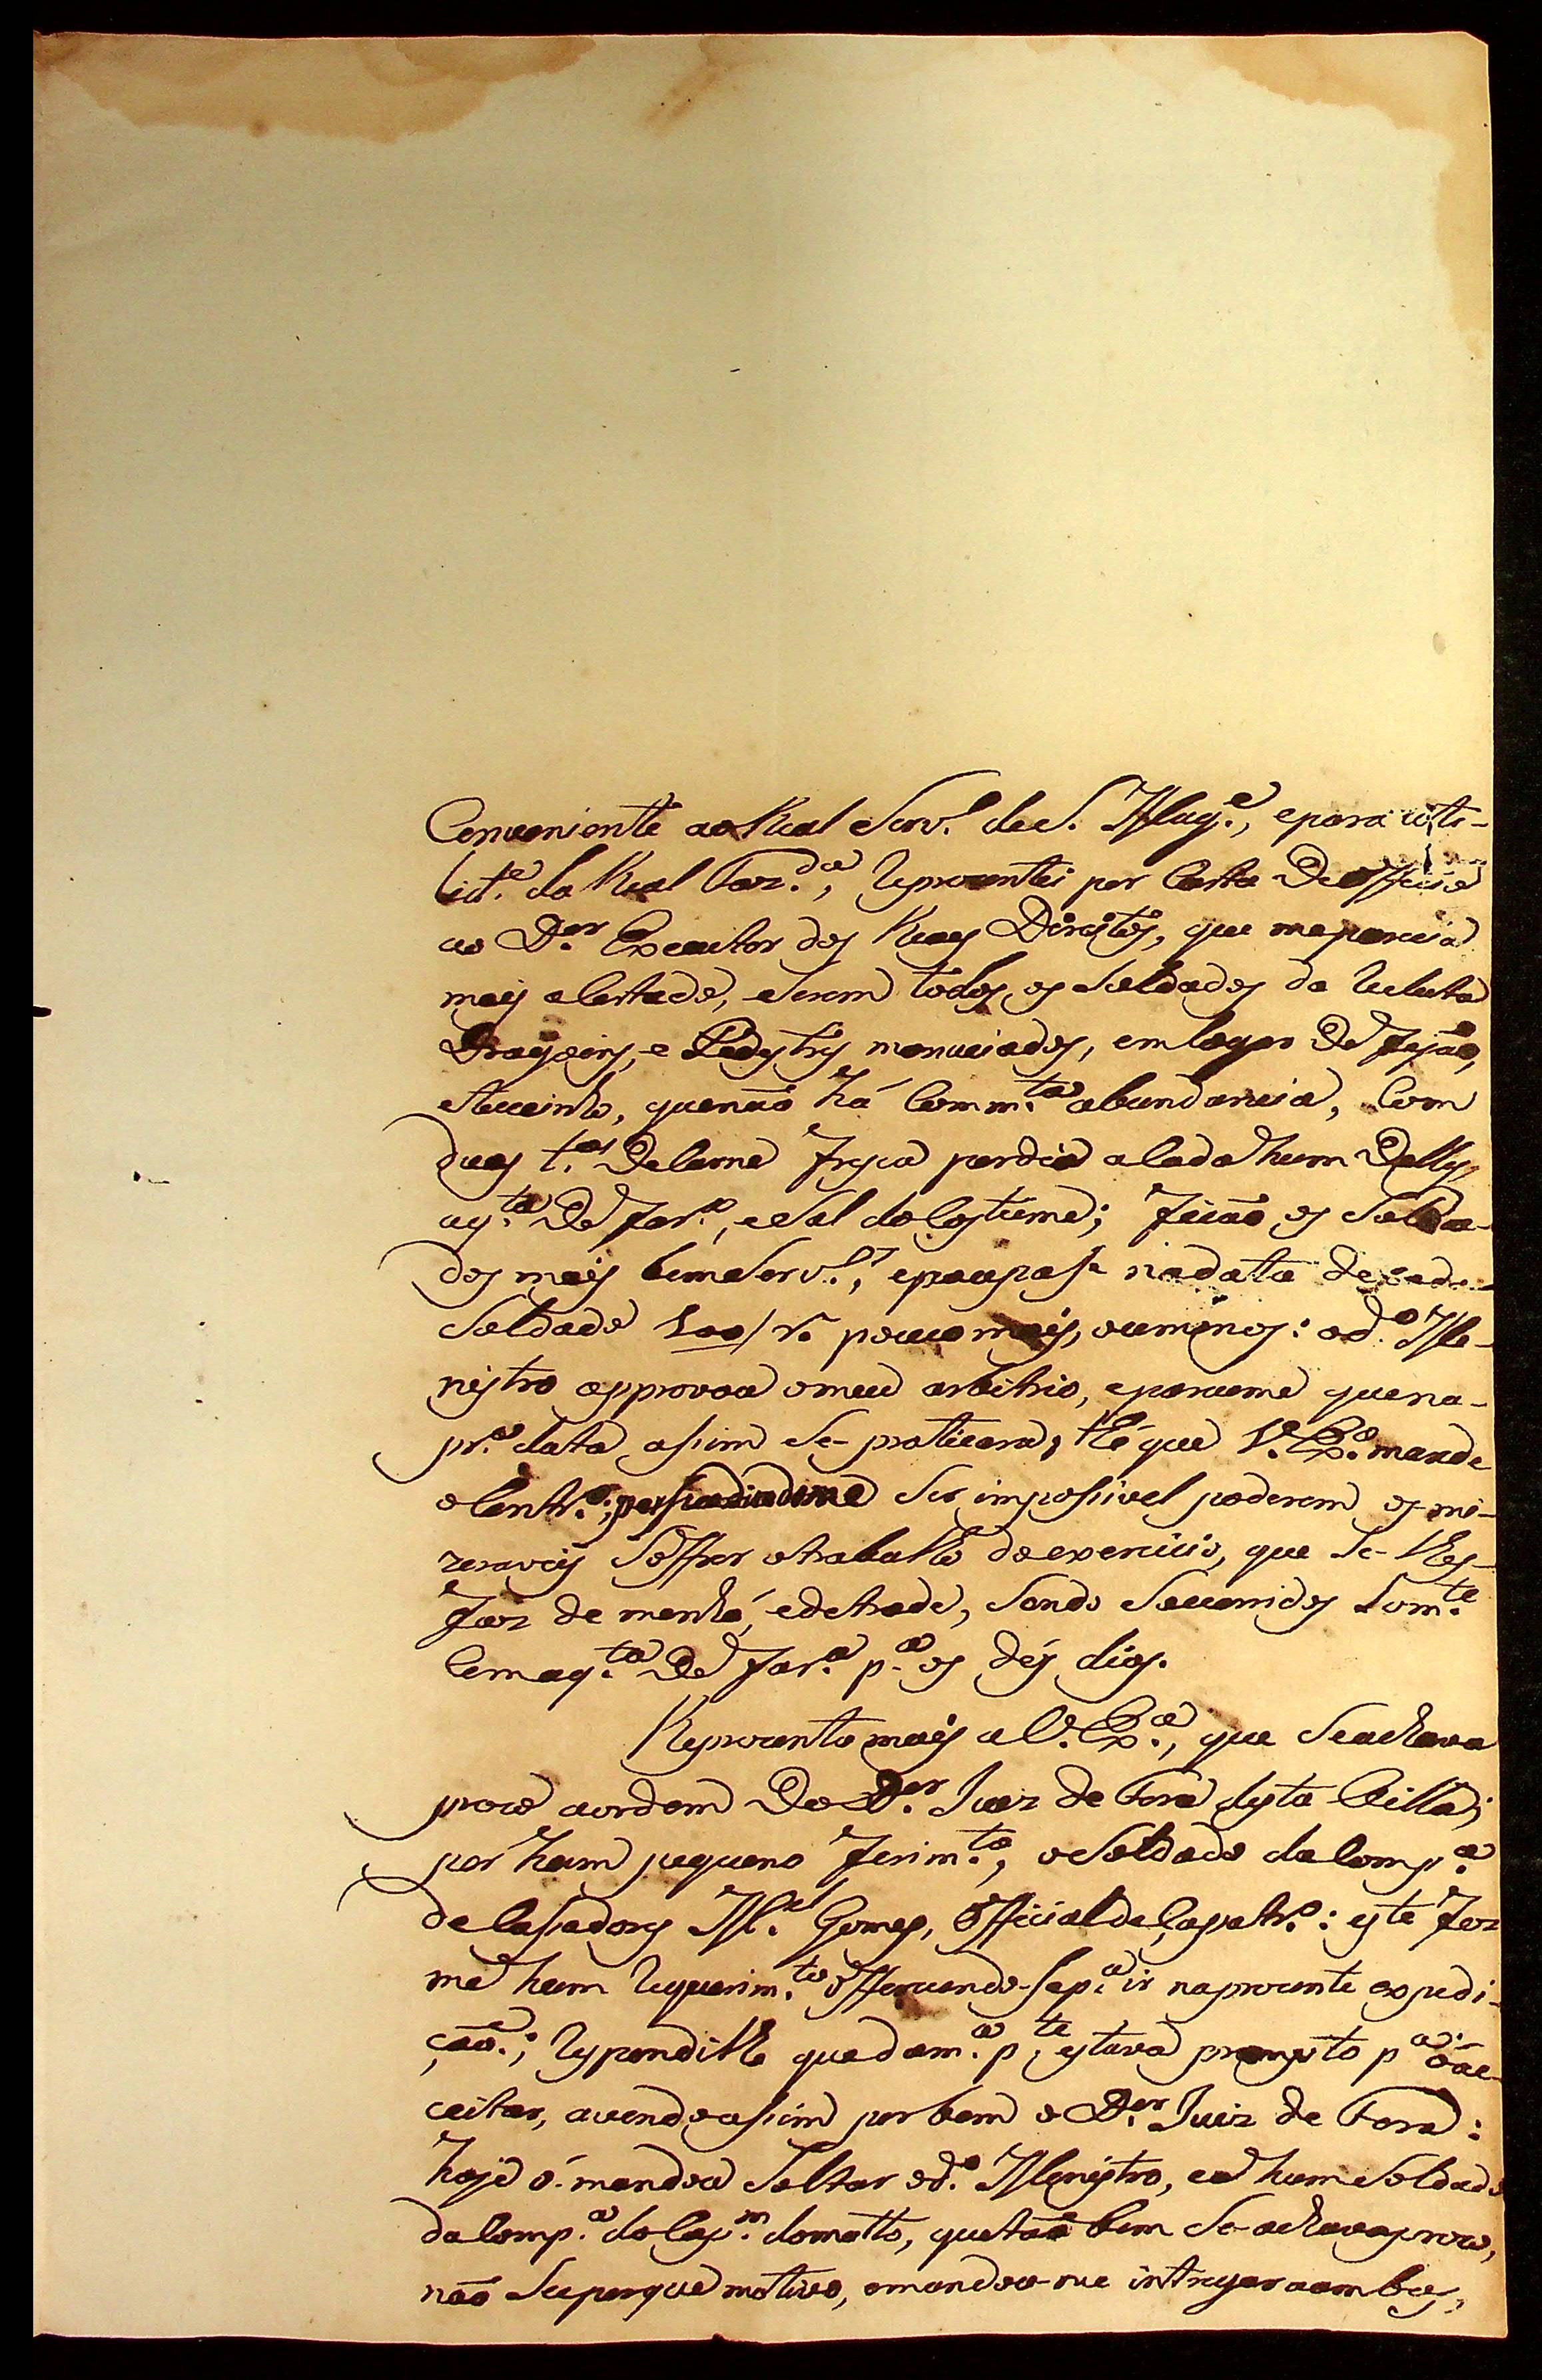 Conveniente ao Real Serv.º de S. Mag.e, e para uti-
lid.e da Real Faz.da, representei por Carta De officio
ao D.or Executor dos Reaes Direitos, que me parecia
mais asertado, e serem todos os Soldados da recluta
Dragoens, e Pedestres moniciados, em logar De Feijaõ,
e toucinho, que naõ há Com m.ta abundancia, Com
duas t.as De Carne Fresca por dia a Cada hum Delles,
a q.ta De Far.a, e Sal do Costume; Ficaõ os Solda-
dos mais bem Serv.os, e poupa-se na data de cada
Soldado 200/ r.s pouco mais, ou menos: o d.o Me-
nistro approvou o meu arbitrio, e pareceme que na
pr.a data asim Se-praticará, thé que V. Ex.a mande
o Contr.o; persuadindome Ser imposivel poderem os mi-
zeraveis Soffrer o trabalho do exercicio, que Se-lhes
Faz de manhã, e de trade, Sendo Socorridos Som.te
Com a q.ta De Far.a p.a os dés dias.
Represento mais a V. Ex.a, que Se achava
prezo a ordem Do D.or Juiz de Fora desta Villa,
por hum pequeno Ferim.to, o Soldado da Comp.a
de Casadores M.el Gomes, Official de Çapatr.o: este Fez
me hum requerim.to offerecendo-se p.a ir na prezente expedi-
çaõ; respondilhe que da m.a p.te estava prompto p.a o ac-
ceitar, avendo asim por bem o D.or Juiz de Fora:
hoje ó mandou Soltar o d.o Menistro, e a hum Soldado
da Comp.a do Cap.m do matto, que taõ bem Se-achava prezo,
naõ Sei porque motivo, e mandou-me intregar a ambos,